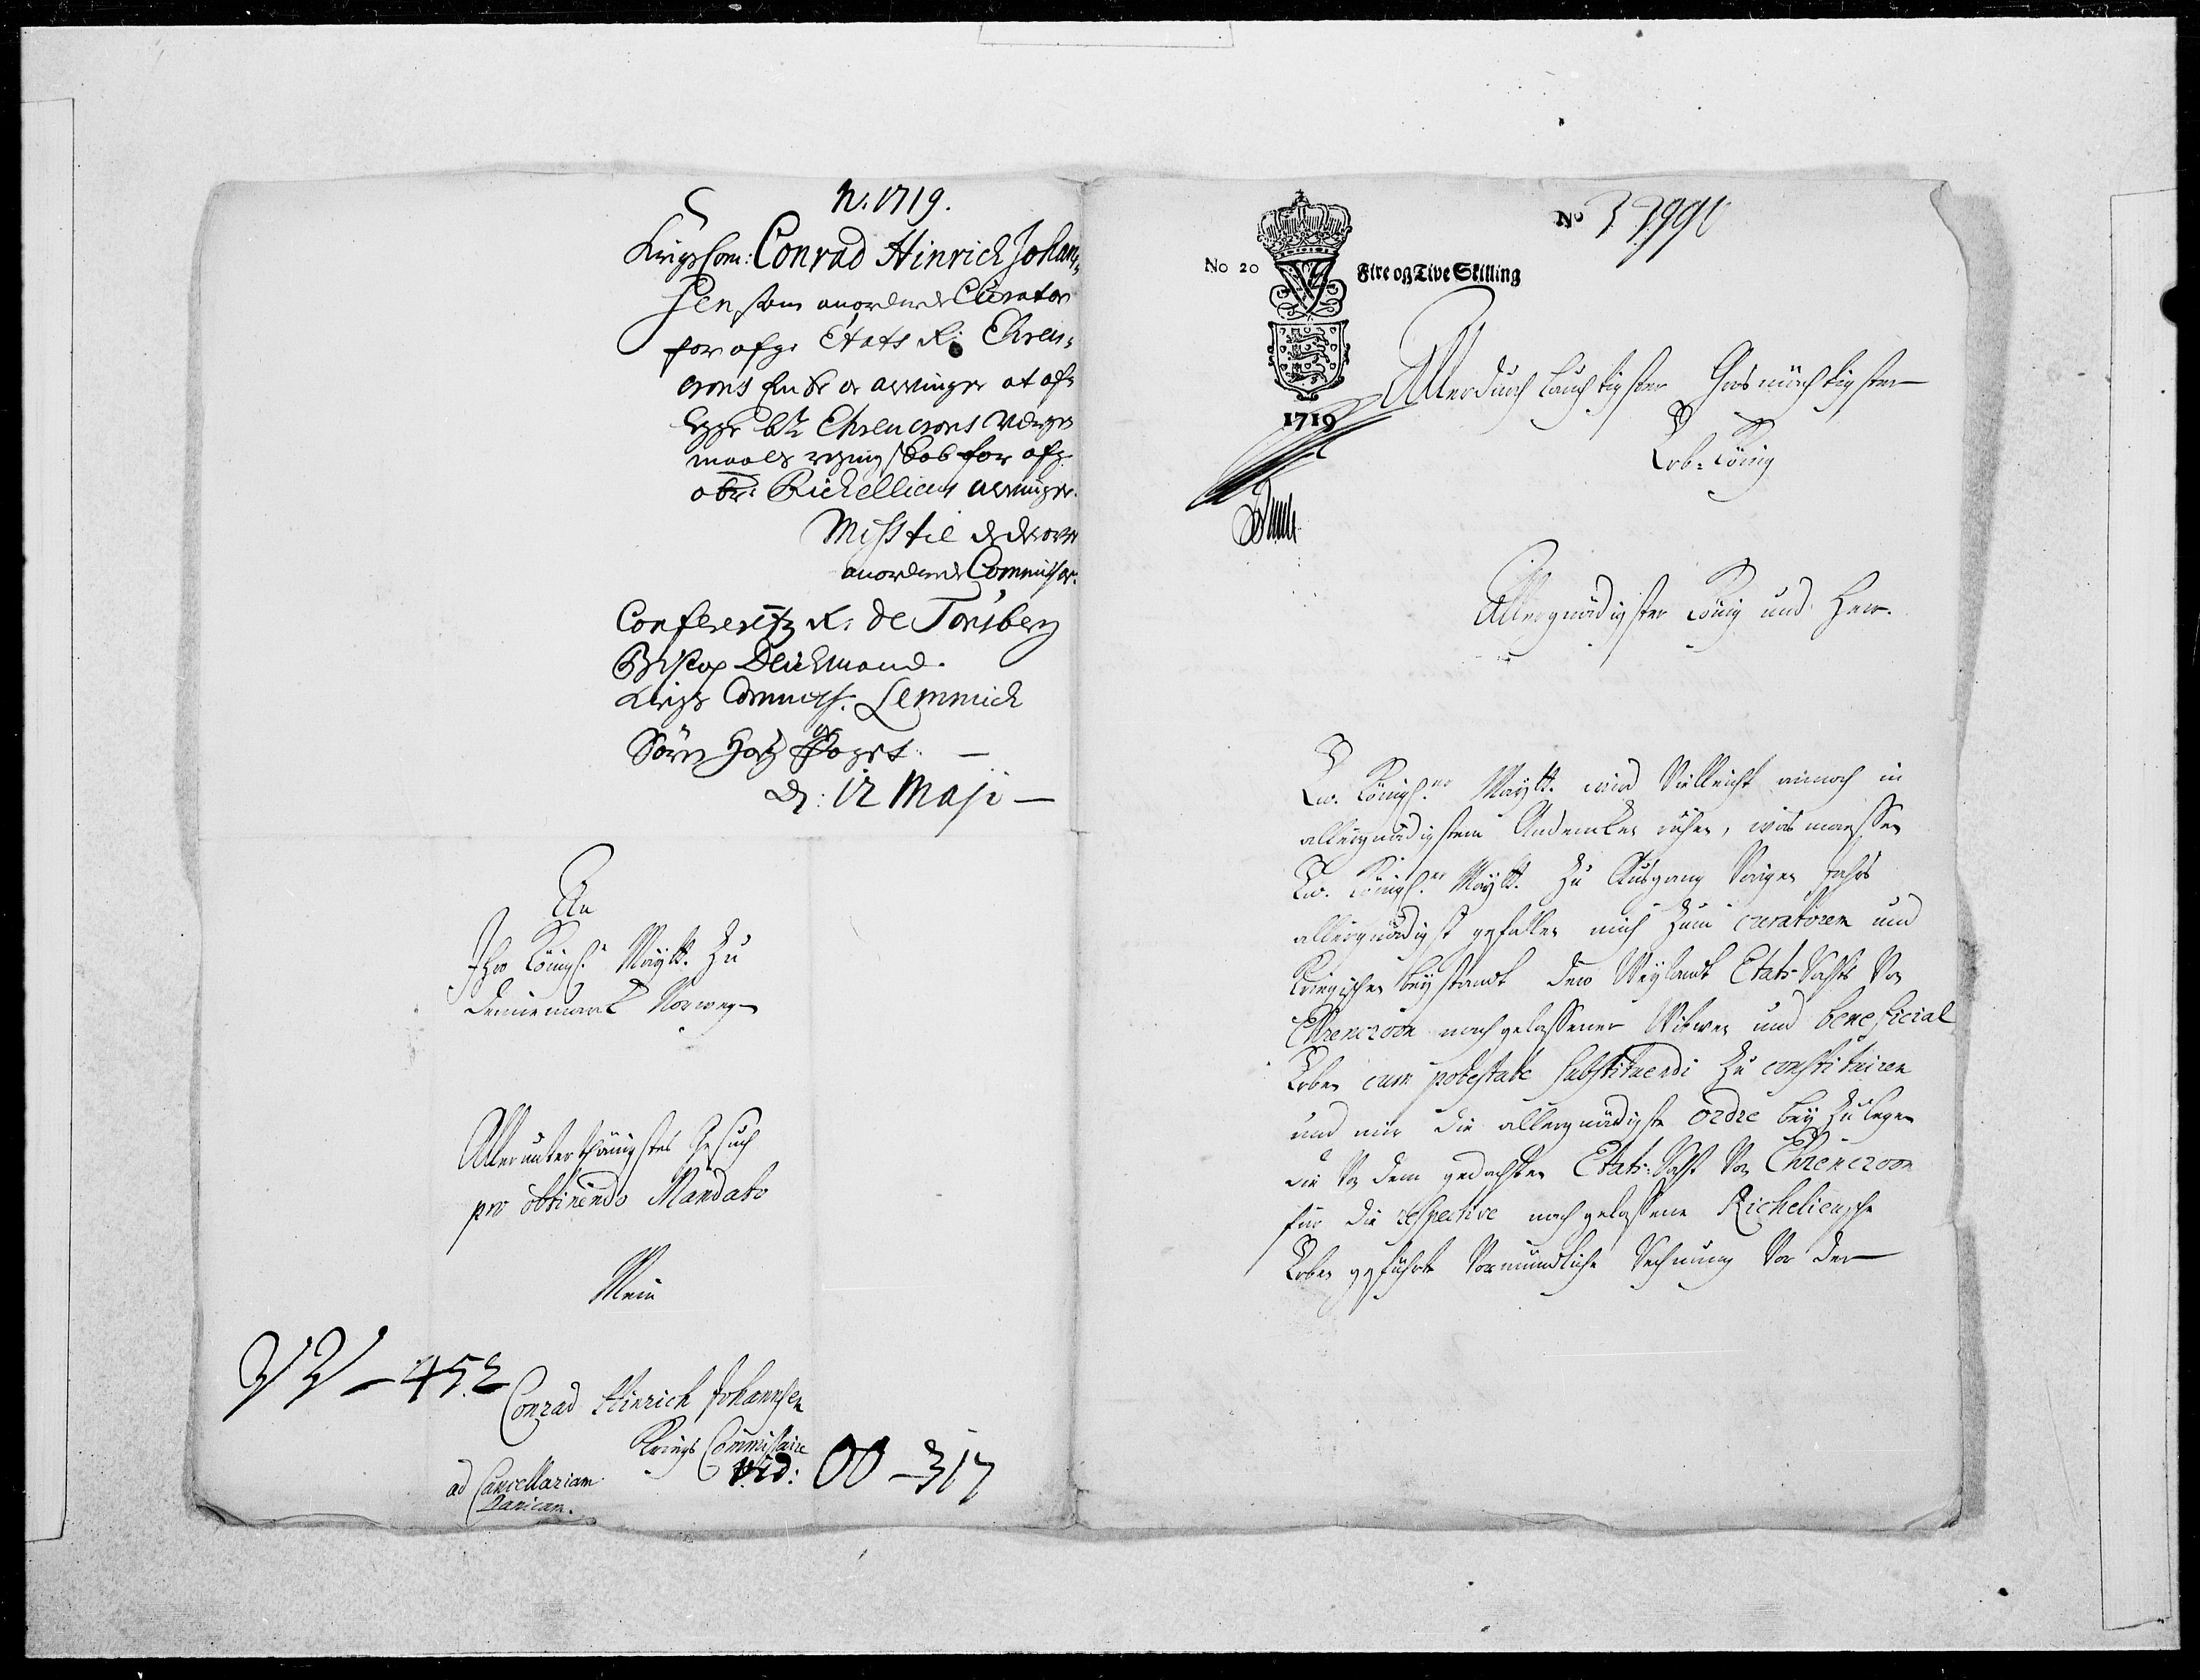 N. 1719.
Krigs Com: Conrad Hinrich Johan-
sen som anordnede Curator
for afg: Etats R: Ehren-
crons Enke og arvinger at af-
legge bte Ehrencrons Værge
maals regnskab for afg:
obr: Richellieus arvinger.
Miss til de derover
anordnede Commissar.
Conferentz R: de Tonsberg
Biskop Deichmand.
Krigs Commiss. Lemmich
Sörn
d: 12 Maji
An
Ihro Königl. Maytt. zu
Dennemarck Norwegen
Allerunterthänigstes Gesuch
pro obtinendo Mandato
Mein
VV - 452
Conrad Hinrich Johannsen
Kriegs Commissaire
vid: OO - 317
ad Cancellariam
Danicam.
No
No 20 Fire og Tive Skilling
1719
Allerdurchlauchtigster Grosmächtigster
Erb-König
Allergnädigster König und Herr.
Ew. Königl.er Maytt. wird Vielleicht annoch in
allergnädigstem Andencken ruhen, was maassen
Ew. Königl.er Maytt. zu Ausgang Vorigen Jahrs
allergnädigst gefallen mich zum curatorem und
Kriegischen beystandt dero Weylandt Etats-Rahts Von
Ehrencroon nachgelassener Witwen und beneficial
Erben cum potestate substituendi zu constituiren
und mir die allergnädigste ordre bey zu legen
die Von dem gedachten Etats-Raht Von Ehrencroon
für die respective nachgelassene Richelieusche
Erben geführte Vormündliche Rechnung Vor der